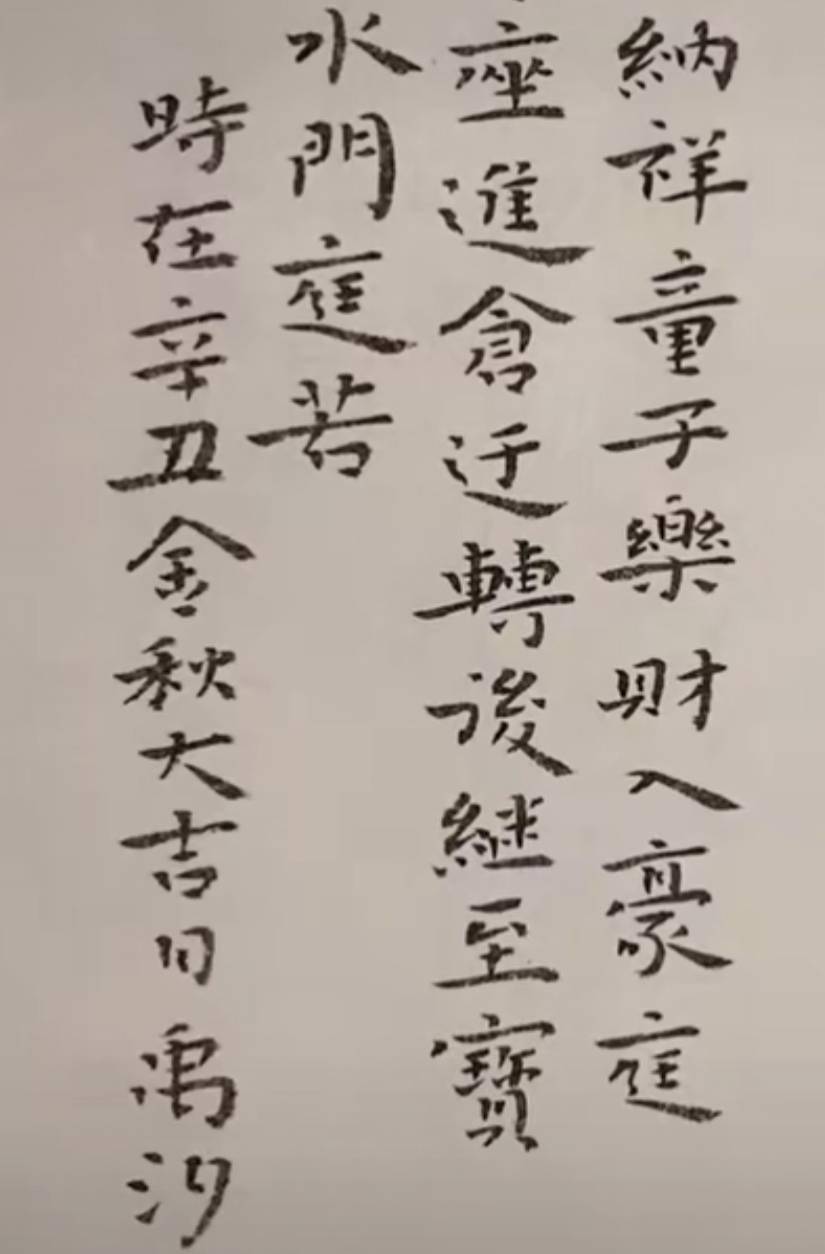 納祥童子樂財入豪庭
座進倉迁轉後継至寶
水門庭若
時在辛丑金秋大吉日禹汐